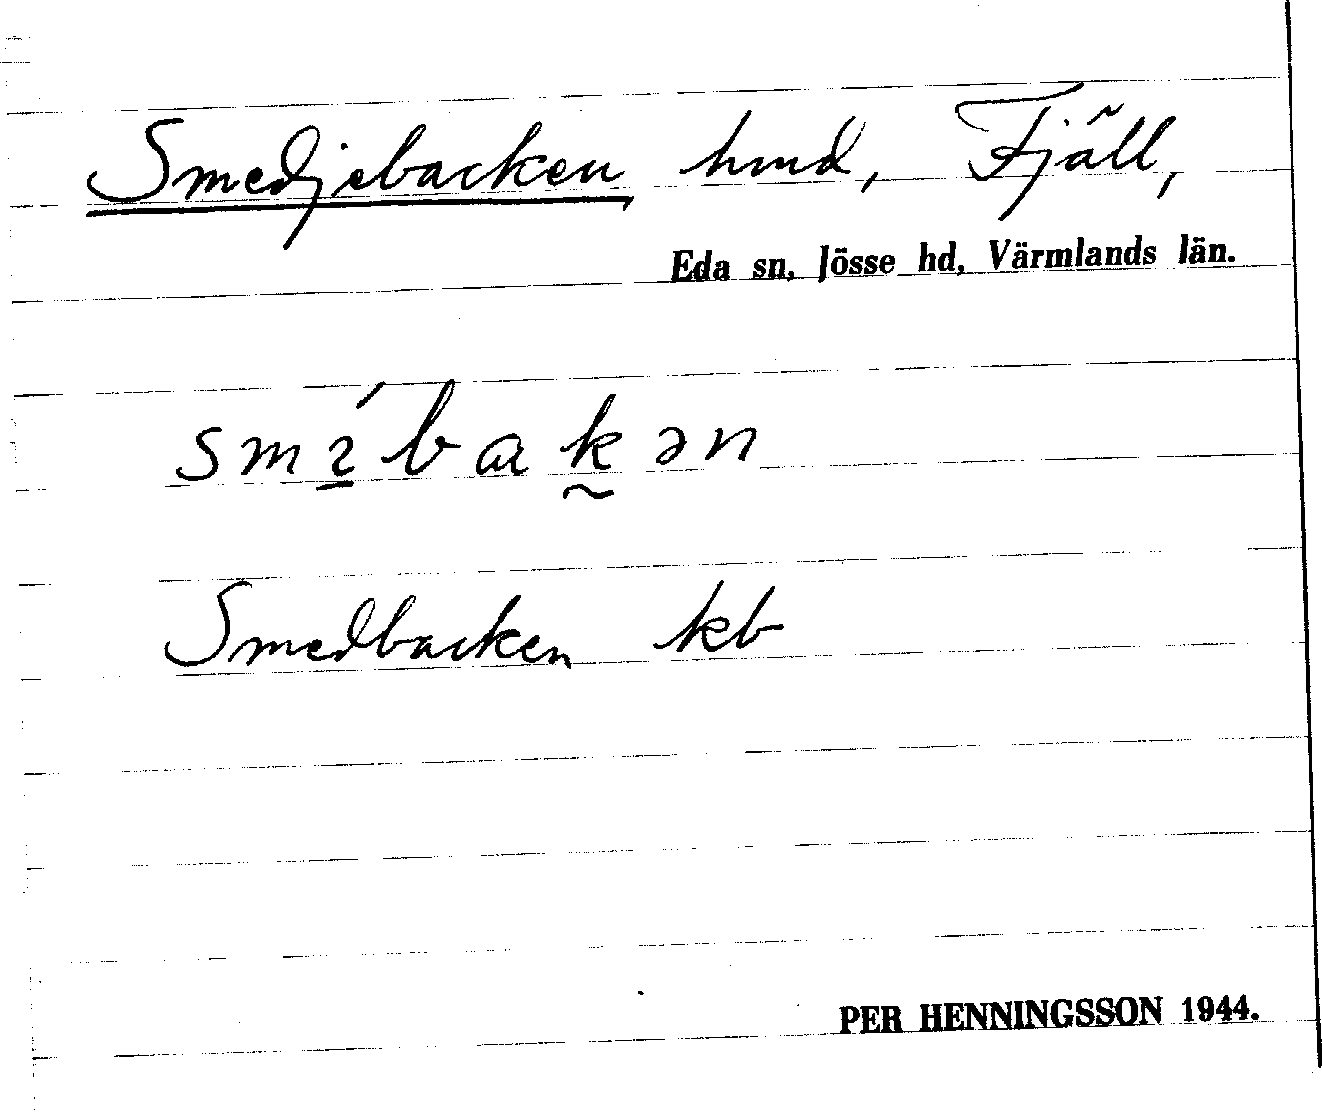 Smedjebacken hmd, Fjäll,
Eda sn, Jösse hd, Värmlands län.
smɿ̲́bak̰ən
Smedbacken kb
PER HENNINGSSON 1944.